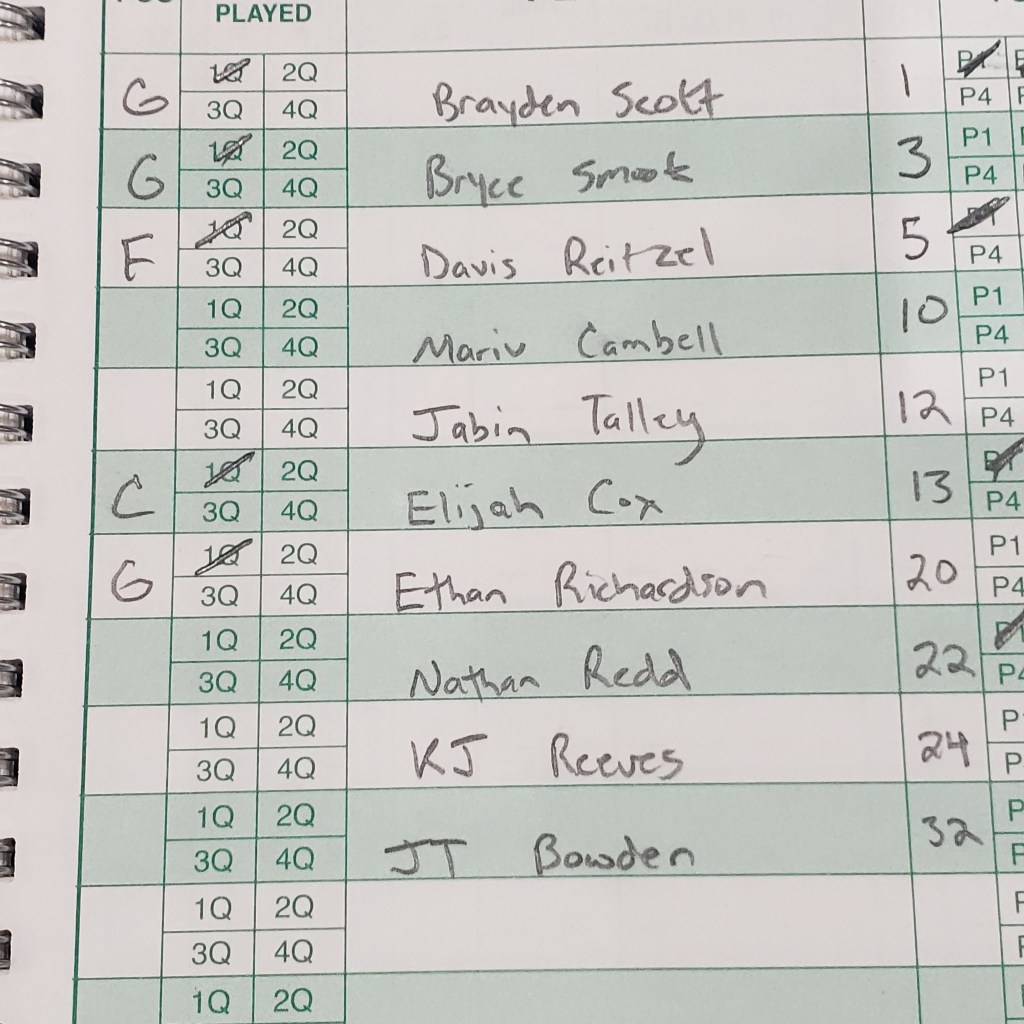 PLAYED
G 1Q 2Q Brayden Scott 1 P1
3Q 4Q P4
G 1Q 2Q Bryce Smook 3 P1
3Q 4Q P4
F 1Q 2Q Davis Reitzel 5 P1
3Q 4Q P4
1Q 2Q Mariu Cambell 10 P1
3Q 4Q P4
1Q 2Q Jabin Talley 12 P1
3Q 4Q P4
C 1Q 2Q Elijah Cox 13 P1
3Q 4Q P4
G 1Q 2Q Ethan Richardson 20 P1
3Q 4Q P4
1Q 2Q Nathan Redd 22 P1
3Q 4Q P4
1Q 2Q KJ Reeves 24 P
3Q 4Q P
1Q 2Q JT Bowden 32 P
3Q 4Q
1Q 2Q
3Q 4Q
1Q 2Q